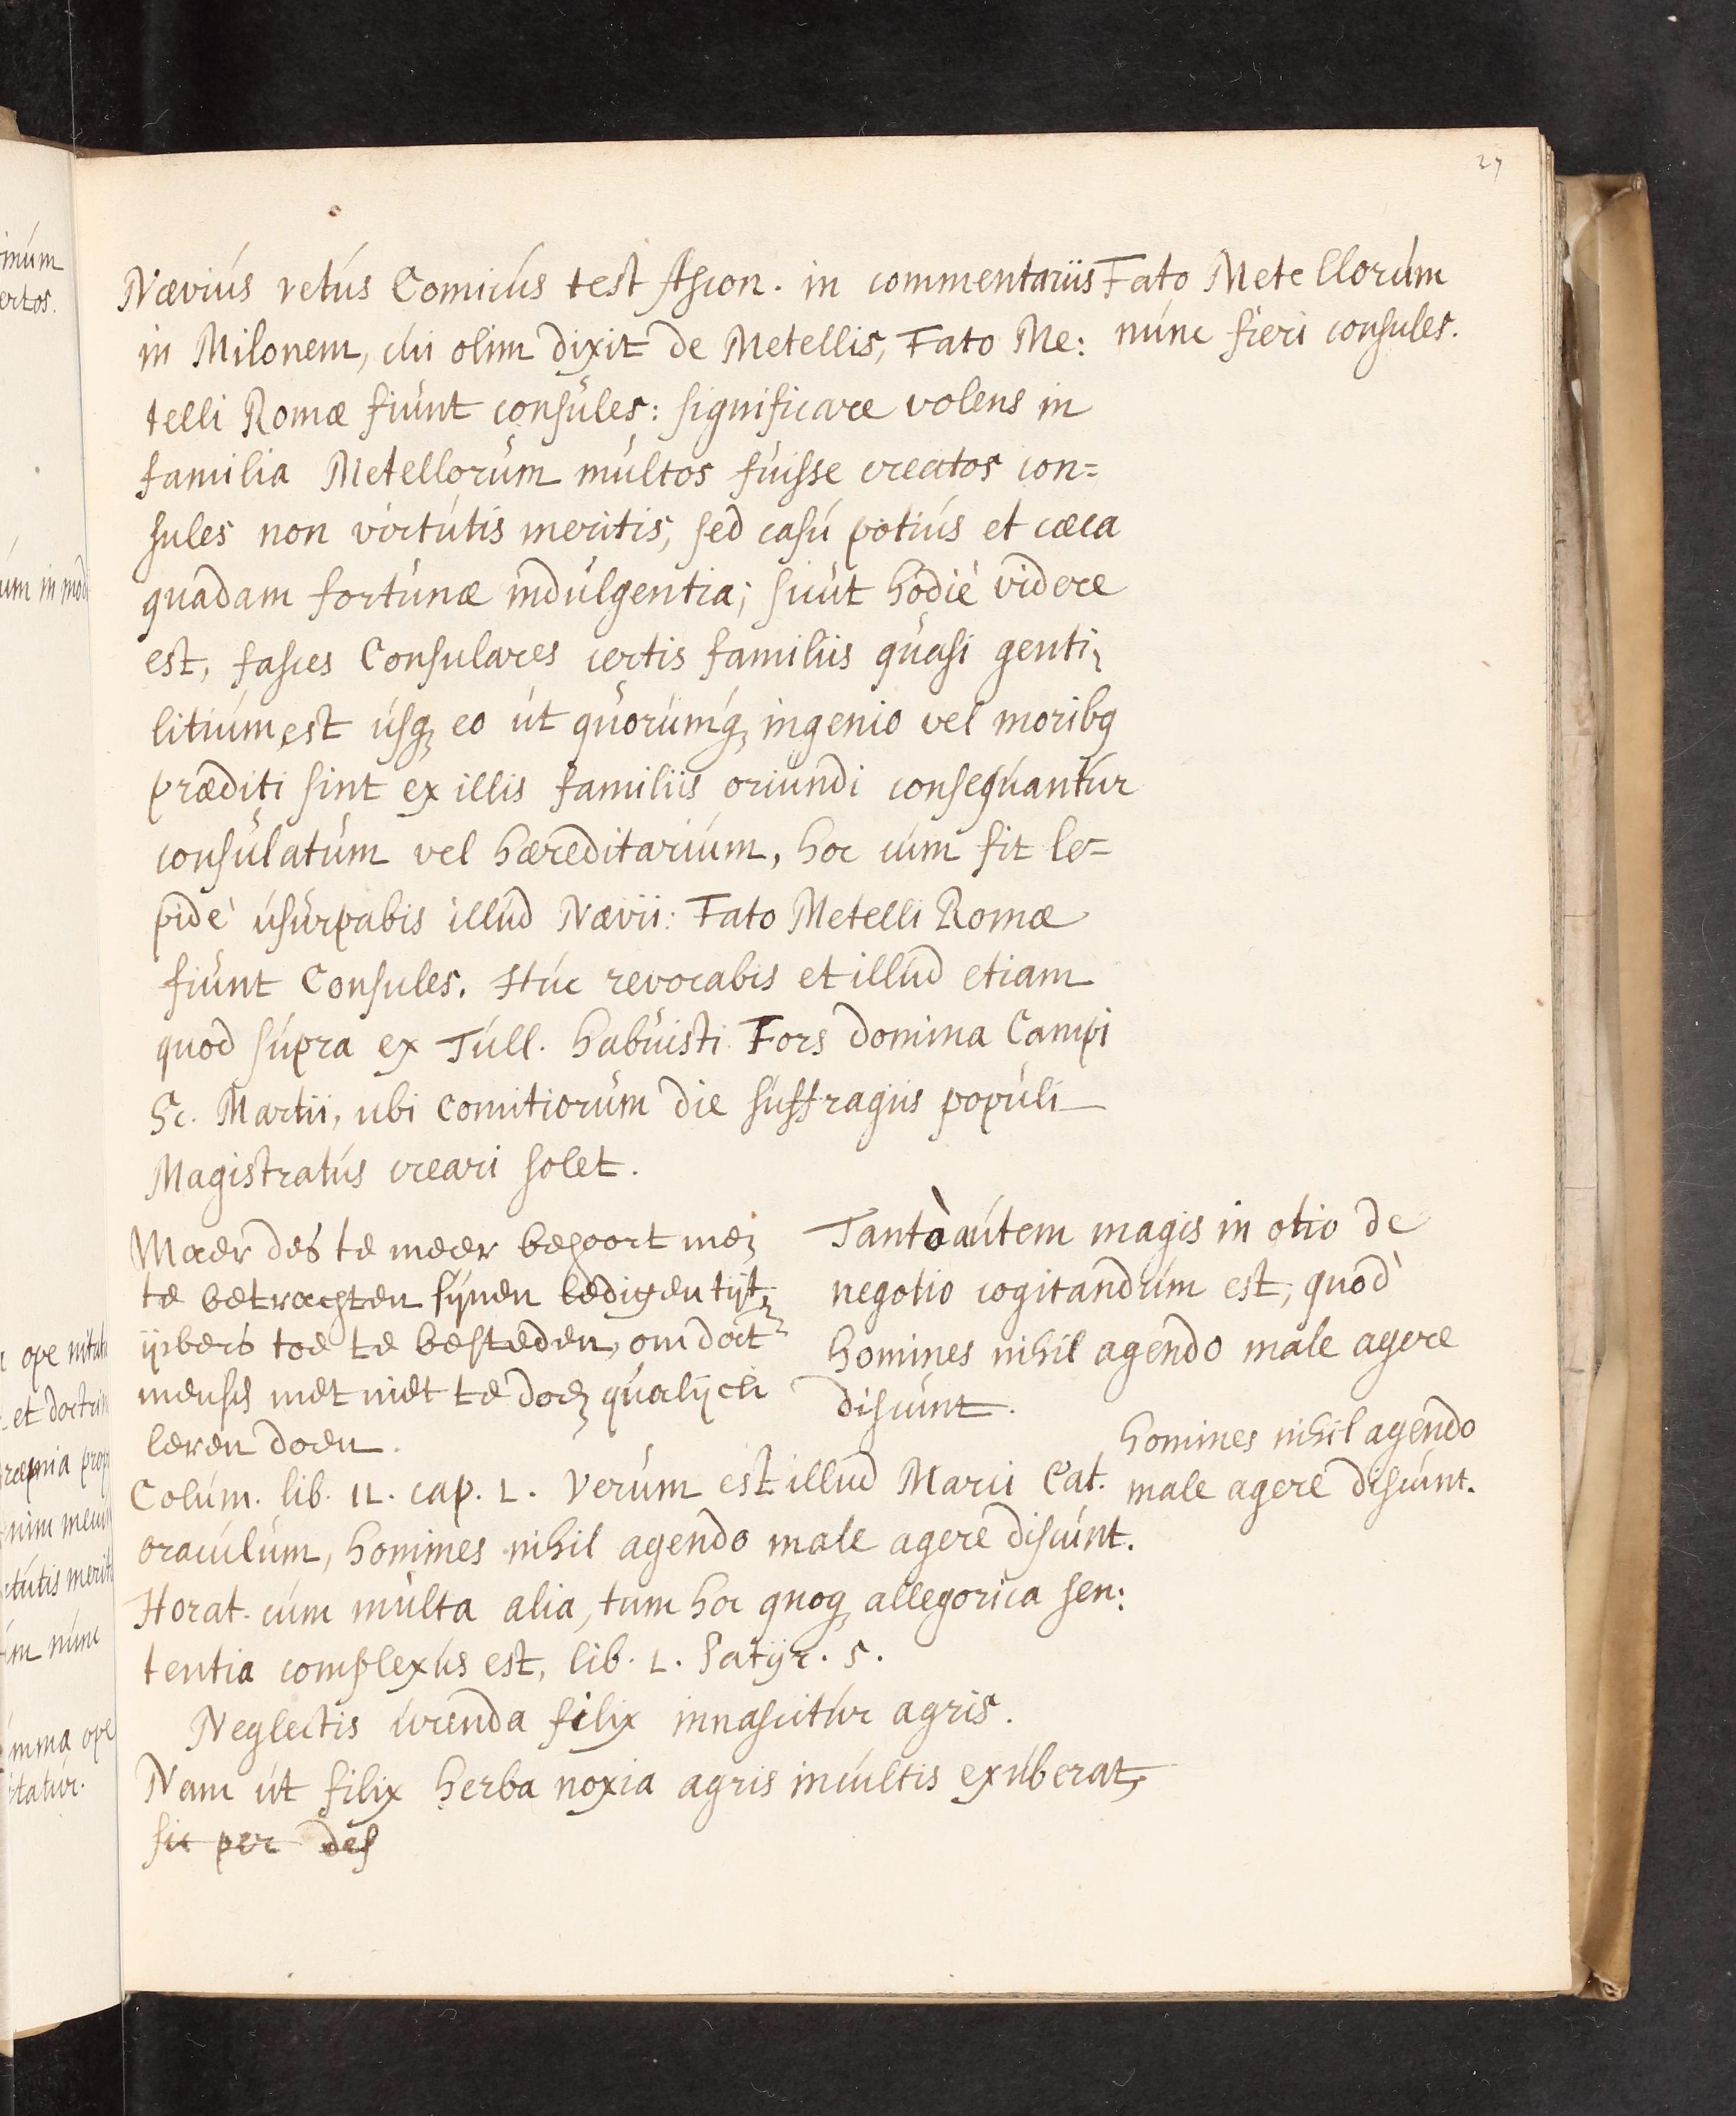 27
Nævius vetus Comicus test Ascon. in commentariis
in Milonem, cui olim dixit de Metellis, Fato Me:
telli Romæ fiunt consules: significare volens in
familia Metellorum multos fuisse creatos con=
sules non virtutis meritis, sed casu potius et cæca
quadam fortunæ indulgentia; sicut hodiè videre
est, fasces Consulares certis familiis quasi genti,
litium est usq, eo ut quorumq, ingenio vel moribq
præditi sint ex illis familiis oriundi consequantur
consulatum vel hæreditarium, hoc cum fit le=
pidè usurpabis illud Nævii: Fato Metelli Romæ
fiunt Consules. Huc revocabis et illud etiam
quod supra ex Tull. habuisti Fors domina Campi
Sc. Martii, ubi comitiorum die suffragiis populi
Magistratus creari solet.
Fato Metellorum
nunc fieri consules.
Maer des te meer behoort men
te betrachten synen ledigen tijt
ijvers toe te besteden, om dat
mensch met niet te doen qualijck
leren doen.
Tantò autem magis in otio de
negotio cogitandum est, quod
homines nihil agendo male agere
discunt.
Colum. lib. 11. cap. 1. Verum est illud Marci Cat.
oraculum, homines nihil agendo male agere discunt.
Horat. cum multa alia, tum hoc quoq, allegorica sen:
tentia complexus est, lib. 1. Satyr. 5.
Neglectis urenda filix innascitur agris.
Nam ut filix herba noxia agris incultis exuberat,
sic per des
homines nihil agendo
male agere discunt.